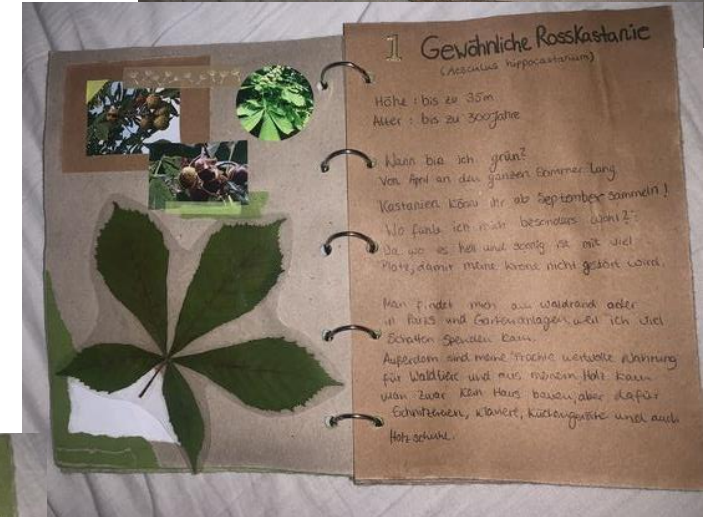 1 Gewöhnliche Rosskastanie
(Aesculus hippocastanum)
Höhe : bis zu 35m
Alter : bis zu 300 Jahre
Wann bin ich grün?
Von April an den ganzen Sommer lang
Kastanien könnt ihr ab September sammeln!
Wo fühle ich mich besonders wohl?
Da wo es hell und sonnig ist mit viel
Platz, damit meine Krone nicht gestört wird.
Man findet mich am Waldrand oder
in Parks und Gartenanlagen, weil ich viel
Schatten spenden kann.
Außerdem sind meine Früchte wertvolle Nahrung
für Waldtiere und aus meinem Holz kann
man zwar kein Haus bauen, aber dafür
Schnitzereien, Klaviere, Küchengeräte und auch
Holzschuhe.